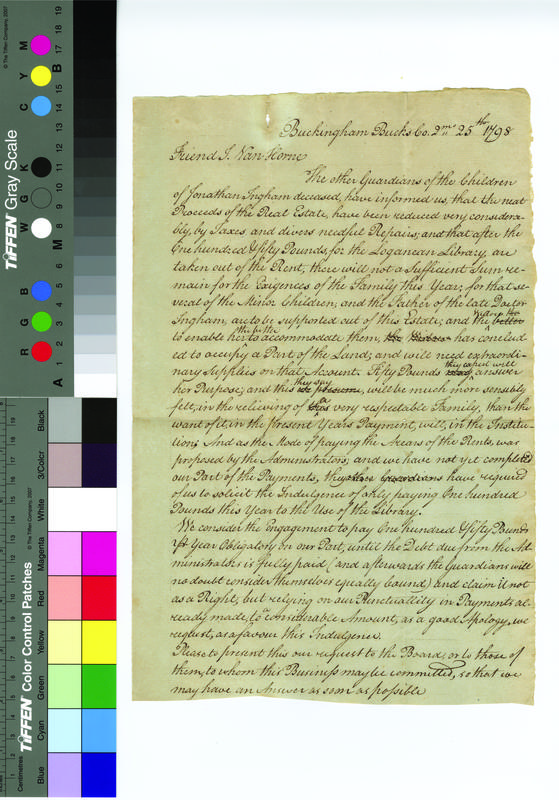 Buckingham Bucks Co. 2mo. 25th 1798
Friend J. Van Horne
The other Guardians of the Children
of Jonathan Ingham deceased, have informed us, that the neat
Proceeds of the Real Estate, have been reduced very considera-
bly, by Taxes, and divers needful Repairs; and that after the
One hundred & fifty Pounds, for the Loganean Library, are
taken out of the Rent, there will not a Sufficient Sum re-
main for the Exigences of the Family this Year; for that se-
veral of the Minor Children, and the Father of the late Doctor
Ingham, are to be supported out of this Estate; and the Widow the better
to enable her the better to accommodate them, the Widow has conclud-
ed to occupy a Part of the Land; and will need extraordi-
nary Supplies on that Account. Fifty Pounds they expect will answer
her Purpose; and this they say we presume, will be much more sensibly
felt, in the relieving of this a very respectable Family, than the
want of it, in the present Years Payment, will, in the Institu-
tion. And as the Mode of paying the Arears of the Rents, was
proposed by the Administrators, and we have not yet completed
our Part of the Payments, they have required
of us to solicit the Indulgence of only paying One hundred
Pounds this Year to the Use of the Library.
We consider the Engagement to pay One hundred & fifty Pounds
Pr Year Obligatory on our Part, until the Debt due from the Ad-
ministrators is fully paid (and afterwards the Guardians will
no doubt consider themselves equally bound) and claim it not
as a Right; but relying on our Punctuallity in Payments al-
ready made, to a considerable Amount, as a good Apology, we
request, as a favour this Indulgence.
Please to present this our request to the Board, or to those of
them, to whom this Business may be committed, so that we
may have an Answer as soon as possible
TIFFEN Gray Scale
© The Tiffen Company, 2007
R G B W G K C Y M
A 1 2 3 4 5 6 M 8 9 10 11 12 13 14 15 B 17 18 19
TIFFEN Color Control Patches
© The Tiffen Company, 2007
Centimetres
Blue Cyan Green Yellow Red Magenta White 3/Color Black